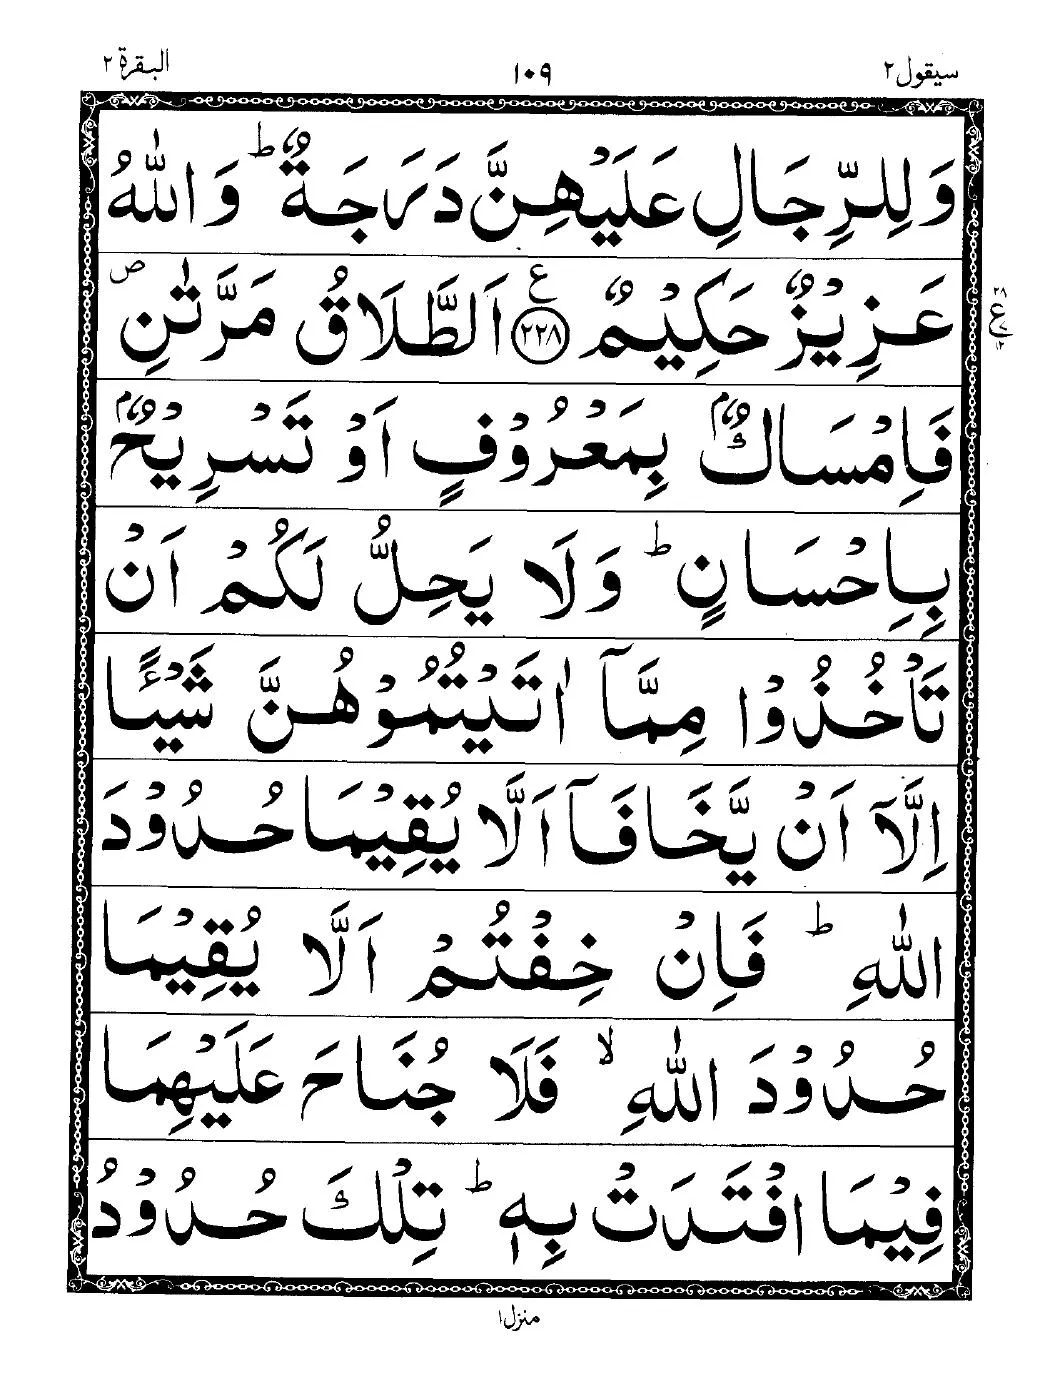 سيقول ٢ ١٠٩ البقرة ٢
وَلِلرِّجَالِ عَلَيْهِنَّ دَرَجَةٌ ؕ وَاللّٰهُ
عَزِيْزٌ حَكِيْمٌ ﴿٢٢٨﴾ ع اَلطَّلَاقُ مَرَّتٰنِ ص
فَاِمْسَاكٌۢ بِمَعْرُوْفٍ اَوْ تَسْرِيْحٌۢ
بِاِحْسَانٍ ؕ وَلَا يَحِلُّ لَكُمْ اَنْ
تَاْخُذُوْا مِمَّآ اٰتَيْتُمُوْهُنَّ شَيْـًٔا
اِلَّآ اَنْ يَّخَافَآ اَلَّا يُقِيْمَا حُدُوْدَ
اللّٰهِ ؕ فَاِنْ خِفْتُمْ اَلَّا يُقِيْمَا
حُدُوْدَ اللّٰهِ ۙ فَلَا جُنَاحَ عَلَيْهِمَا
فِيْمَا افْتَدَتْ بِهٖ ؕ تِلْكَ حُدُوْدُ
٢٨
ع
١٢
منزل ١